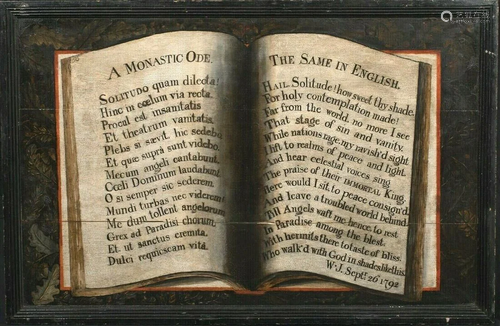 A MONASTIC ODE.
SOLITUDO quam dilecta!
Hinc in cœlum via recta.
Procul est insanitatis
Et theatrum vanitatis.
Plebs si sævit, hic sedebo
Et quæ suprá sunt videbo.
Mecum angeli cantabunt
Cœli Dominum laudabunt
O si semper sic sederem,
Mundi turbas nec viderem!
Me dum tollent angelorum
Grex ad Paradisi chorum;
Et ut sanctus eremita,
Dulci requiescam vitâ.
THE SAME IN ENGLISH.
HAIL, Solitude! how sweet thy shade,
For holy contemplation made!
Far from the world, no more I see
That stage of sin and vanity.
While nations rage, my ravish'd sight
I lift to realms of peace and light.
And hear celestial voices sing
The praise of their IMMORTAL King.
Here would I sit, to peace consign'd,
And leave a troubled world behind,
Till Angels waft me hence, to rest
In Paradise among the blest.
With hermits there to taste of bliss,
Who walk'd with God in shades like this.
W. J. Septr. 26th 1792